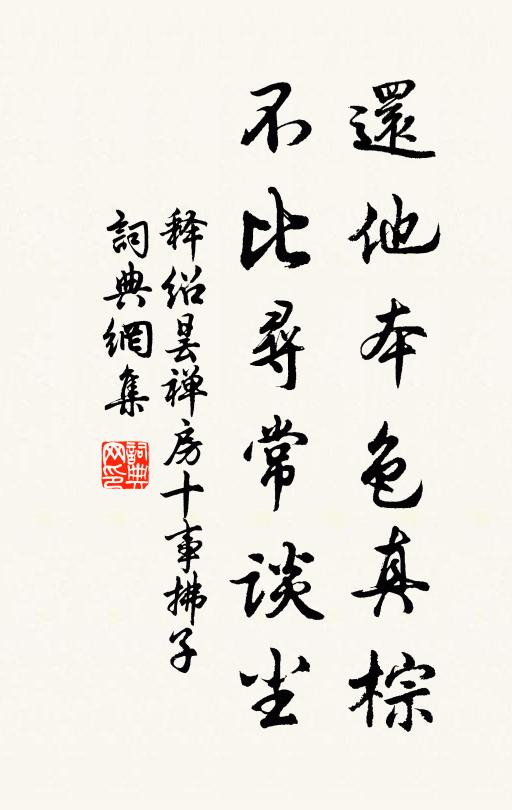 還他本色真棕
不比尋常談尘
释绍昙禅房十事拂子
詞典網集
詞典
网印